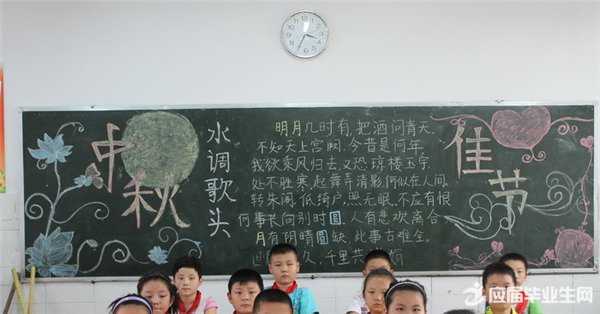 中秋
水调歌头
明月几时有,把酒问青天,
不知天上宫阙,今昔是何年,
我欲乘风归去,又恐琼楼玉宇,
处不胜寒,起舞弄清影,何似在人间,
转朱阁,低绮户,照无眠,不应有恨
何事长向别时圆,人有悲欢离合
月有阴晴圆缺,此事古难全。
久,千里共
佳节
应届毕业生网